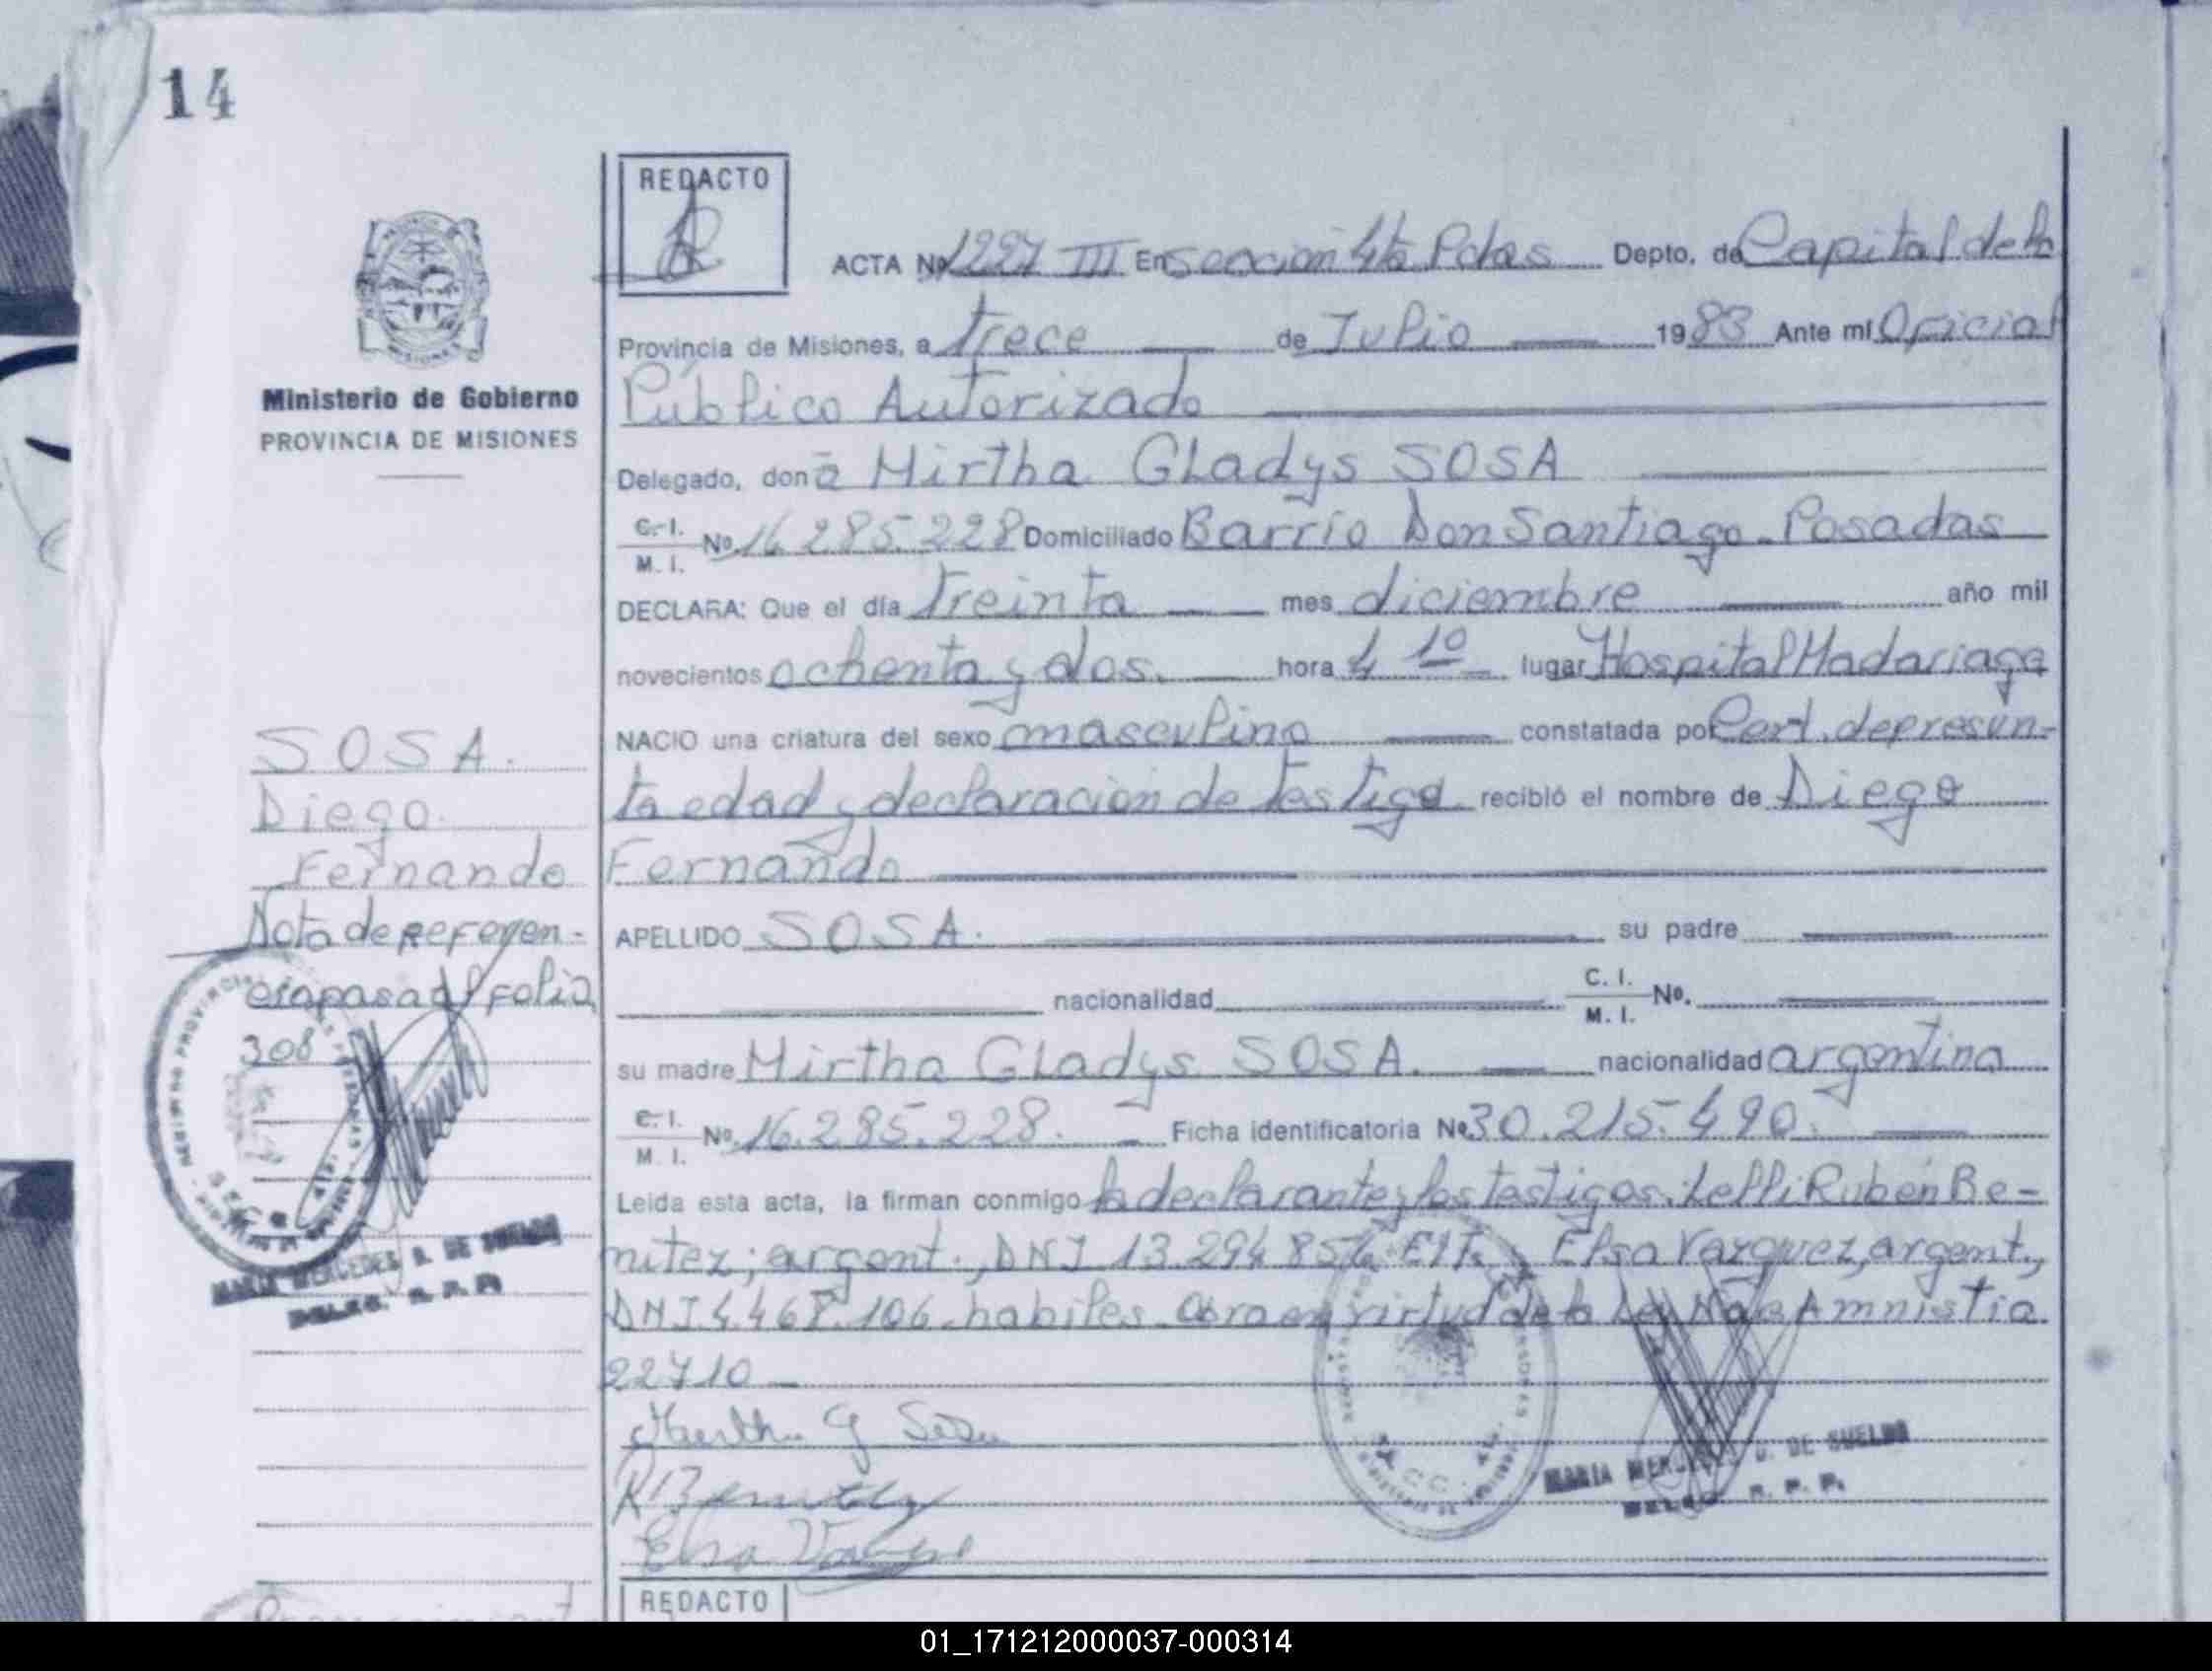 14
REDACTO
ACTA Nº 1227 III En seccion 4ta Pdas Depto. de Capital de la
Provincia de Misiones, a trece de Julio 1983 Ante mí Oficial
Público Autorizado
Delegado, doña Mirtha Gladys SOSA
C. I.
M. I. Nº 16.285.228 Domiciliado Barrio Don Santiago - Posadas
DECLARA: Que el día treinta mes diciembre año mil
novecientos ochenta y dos. hora 4 10 lugar Hospital Madariaga
NACIO una criatura del sexo masculino constatada por Cert. de presun-
ta edad y declaración de testigo recibió el nombre de Diego
Fernando
APELLIDO SOSA. su padre
nacionalidad C. I. M. I. Nº.
su madre Mirtha Gladys SOSA. nacionalidad argentina
C. I.
M. I. Nº. 16.285.228. Ficha identificatoria Nº 30.215.490.
Leída esta acta, la firman conmigo la declarante y los testigos: Lelli Rubén Be-
nitez; argent., DNI 13.294.856 Elsa Vazquez, argent.,
DNI 4.468.106 habiles. Obra en virtud de la Ley Nac Amnistia
22710
Mirtha G Sosa
R Benitez
Elsa Vazquez
MARIA MERCEDES D. DE SUELDO
DELEG. R. P. P.
Ministerio de Gobierno
PROVINCIA DE MISIONES
SOSA.
Diego
Fernando
Nota de referen-
cia pasa al folio
308
MARIA MERCEDES D. DE SUELDO
DELEG. R. P. P.
REDACTO
01_171212000037-000314